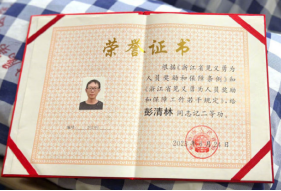 荣誉证书
根据《浙江省见义勇为
人员奖励和保障条例》和
《浙江省见义勇为人员奖励
和保障工作若干规定》,给
彭清林 同志记二等功